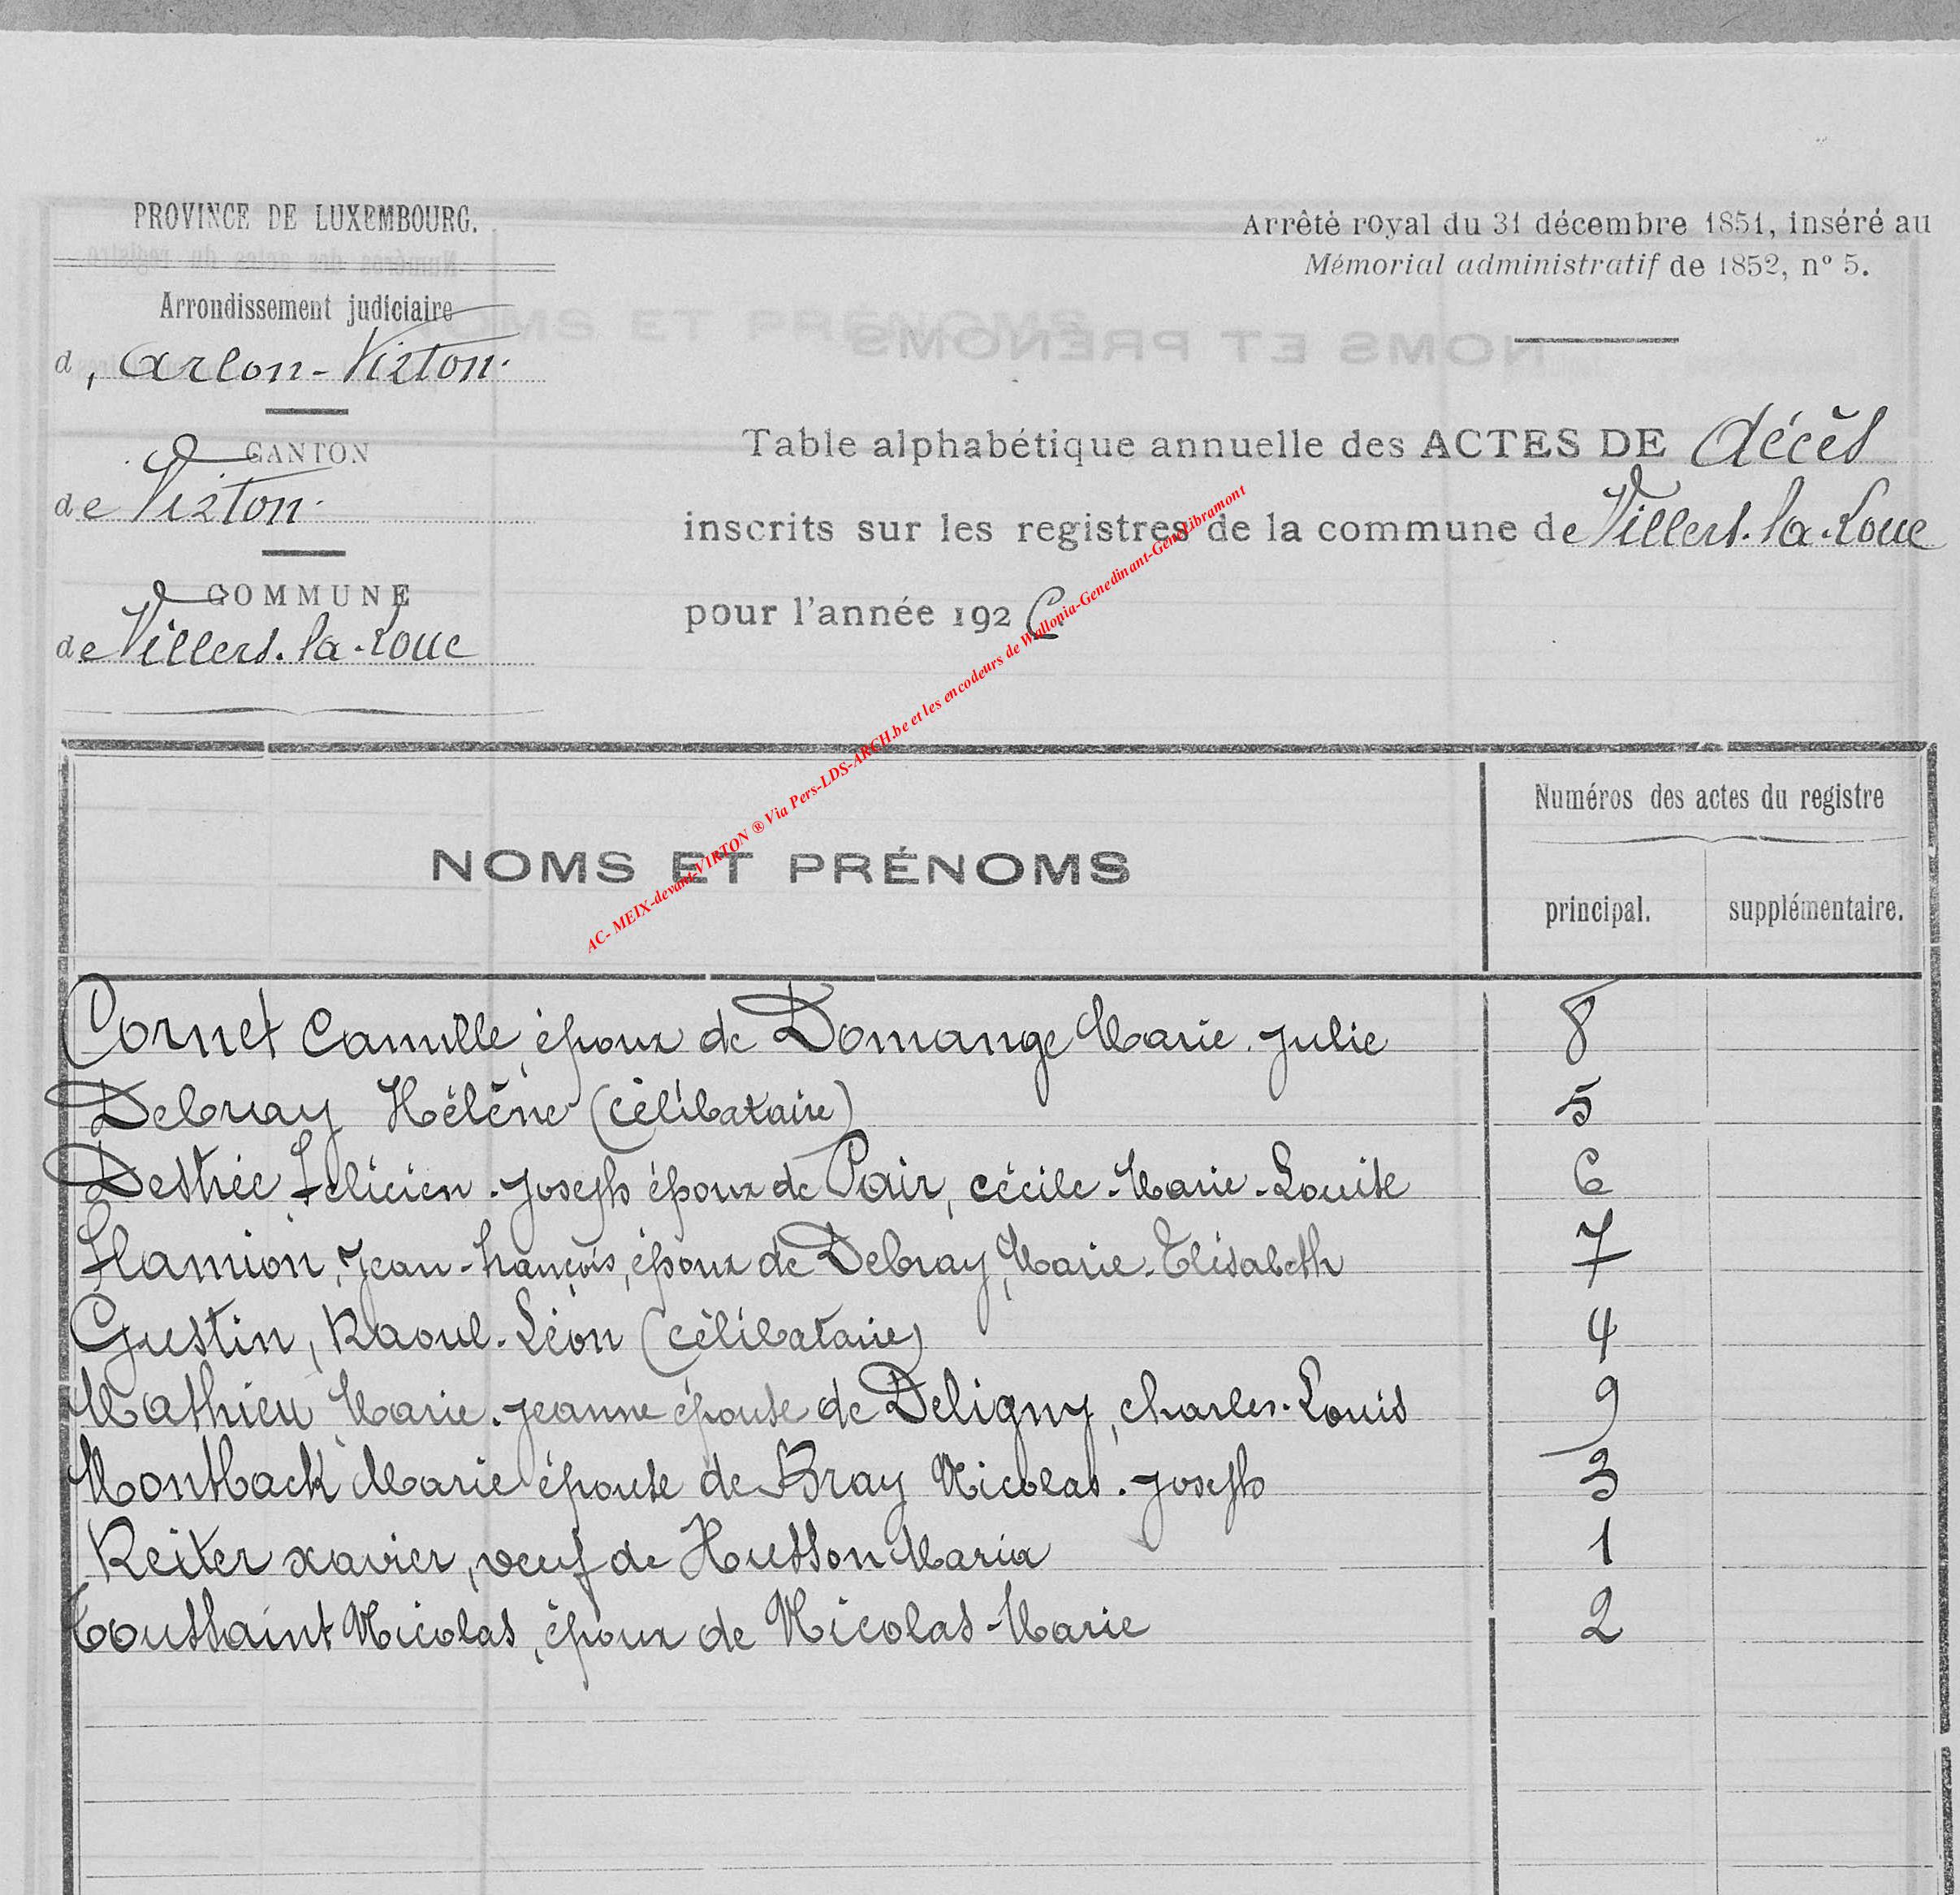 PROVINCE DE LUXEMBOURG.
Arrondissement judiciaire
d, Arlon-Virton.
CANTON
de Virton.
COMMUNE
de Villers-la-Loue
Arrêté royal du 31 décembre 1851, inséré au
Mémorial administratif de 1852, n° 5.
Table alphabétique annuelle des ACTES DE décès
inscrits sur les registres de la commune de Villers-la-Loue
pour l'année 192
AC- MEIX-devant-VIRTON ® Via Pers-LDS-ARCH.be et les encodeurs de Wallonia-Genedinant-GeneLibramont
NOMS ET PRÉNOMS
Numéros des actes du registre
principal. supplémentaire.
Cornet Camille, époux de Domange Marie-Julie 8
Debray Hélène (célibataire) 5
Destrée, Félicien-Joseph époux de Pair, Cécile-Marie-Louise 6
Flamion, Jean-François, époux de Debray, Marie-Elisabeth 7
Gustin, Raoul-Léon (célibataire) 4
Mathieu, Marie-Jeanne épouse de Deligny, Charles-Louis 9
Montback Marie épouse de Bray Nicolas-Joseph 3
Reiter Xavier, veuf de Husson Maria 1
Toussaint Nicolas, époux de Nicolas-Marie 2